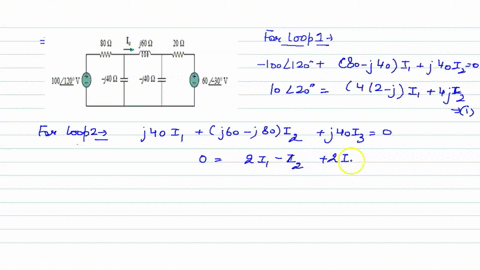 =
80 Ω I₀ j60 Ω 20 Ω
100∠120° V -j40 Ω -j40 Ω 60∠-30° V
For Loop 1 →
-100∠120° + (80-j40) I₁ + j40 I₂ = 0
10∠20° = (4(2-j) I₁ + 4j I₂
→ (1)
For loop2 → j40 I₁ + (j60-j80) I₂ + j40 I₃ = 0
0 = 2 I₁ - I₂ + 2 I.